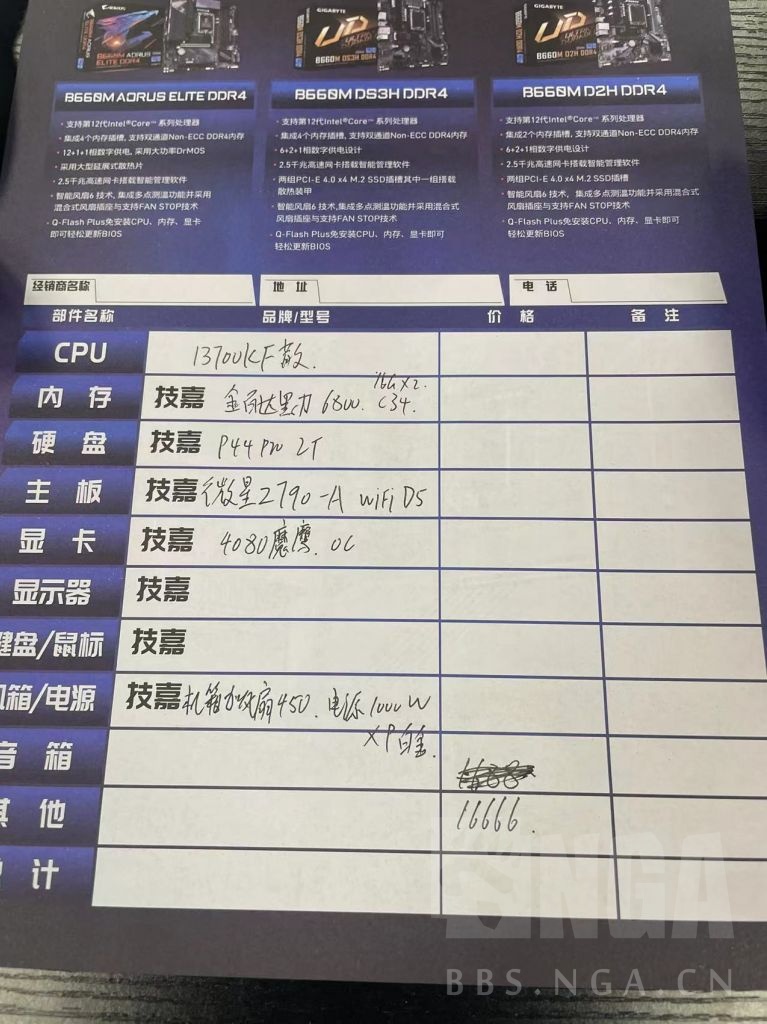 AORUS
B660M AORUS
ELITE DDR4
GIGABYTE
UD
B660M DS3H DDR4
GIGABYTE
UD
B660M D2H DDR4
B660M AORUS ELITE DDR4
B660M DS3H DDR4
B660M D2H DDR4
• 支持第12代Intel®Core™ 系列处理器
• 集成4个内存插槽, 支持双通道Non-ECC DDR4内存
• 12+1+1相数字供电, 采用大功率DrMOS
• 采用大型延展式散热片
• 2.5千兆高速网卡搭载智能管理软件
• 智能风扇6 技术, 集成多点测温功能并采用
混合式风扇插座与支持FAN STOP技术
• Q-Flash Plus免安装CPU、内存、显卡
即可轻松更新BIOS
• 支持第12代Intel®Core™ 系列处理器
• 集成4个内存插槽, 支持双通道Non-ECC DDR4内存
• 6+2+1相数字供电设计
• 2.5千兆高速网卡搭载智能管理软件
• 两组PCI-E 4.0 x4 M.2 SSD插槽其中一组搭载
散热装甲
• 智能风扇6 技术,集成多点测温功能并采用混合式
风扇插座与支持FAN STOP技术
• Q-Flash Plus免安装CPU、内存、显卡即可
轻松更新BIOS
• 支持第12代Intel®Core™ 系列处理器
• 集成2个内存插槽, 支持双通道Non-ECC DDR4内存
• 6+2+1相数字供电设计
• 2.5千兆高速网卡搭载智能管理软件
• 两组PCI-E 4.0 x4 M.2 SSD插槽
• 智能风扇6 技术, 集成多点测温功能并采用混合式
风扇插座与支持FAN STOP技术
• Q-Flash Plus免安装CPU、内存、显卡即可
轻松更新BIOS
经销商名称 地 址 电 话
部件名称 品牌/型号 价 格 备 注
CPU 13700KF散.
16G×2.
内 存 技嘉 金百达黑刃 6800. C34.
硬 盘 技嘉 P44 Pro 2T
主 板 技嘉 微星Z790-A wifi D5
显 卡 技嘉 4080魔鹰. OC
显示器 技嘉
键盘/鼠标 技嘉
机箱/电源 技嘉 机箱加风扇450. 电源1000W
XP白金.
音 箱
其 他 16666.
计
NGA
BBS.NGA.CN